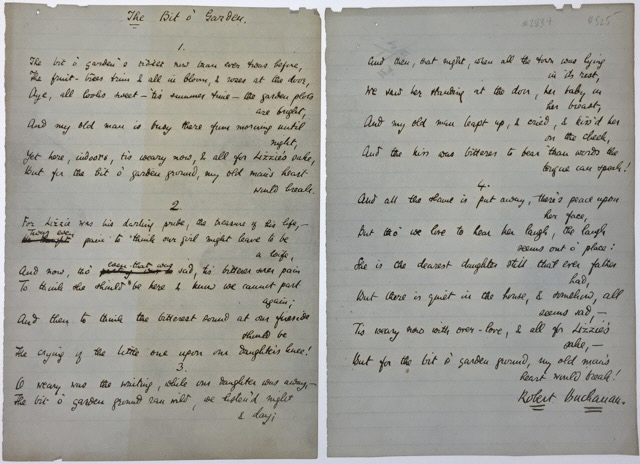 The Bit o' Garden.
1.
The bit o' garden's nicer now than ever 'twas before,
The fruit-trees trim & all in bloom, & roses at the door,
Aye, all looks sweet—'tis summer time—the garden plots
are bright,
And my old man is busy there from morning until
night,
Yet here, indoors, tis weary now, & all for Lizzie's sake,
But for the bit o' garden ground, my old man's heart
would break.
2.
For Lizzie was his darling pride, the treasure of his life,—
'Twas even
pain to think our girl might leave to be
a wife,
And now, tho' even that was sad, 'tis bitterer even pain
To think she should be here & know we cannot part
again;
And then to think the bitterest sound at our fireside
should be
The crying of the little one upon our daughter's knee!
3.
O weary was the waiting, while our daughter was away,—
The bit o' garden ground ran wild, we listen'd night
& day;
#2834 0525
And then, that night, when all the town was lying
in its rest,
We saw her standing at the door, her baby in
her breast,
And my old man leapt up, & cried, & kiss'd her
on the cheek,
And the kiss was bitterer to bear than words the
tongue can speak!
4.
And all the shame is put away, there's peace upon
her face,
But tho' we love to hear her laugh, the laugh
seems out o' place:
She is the dearest daughter still that ever father
had,
But there is quiet in the house, & somehow, all
seems sad,—
Tis weary now with over-love, & all for Lizzie's
sake,—
But for the bit o' garden ground, my old man's
heart would break!
Robert Buchanan.